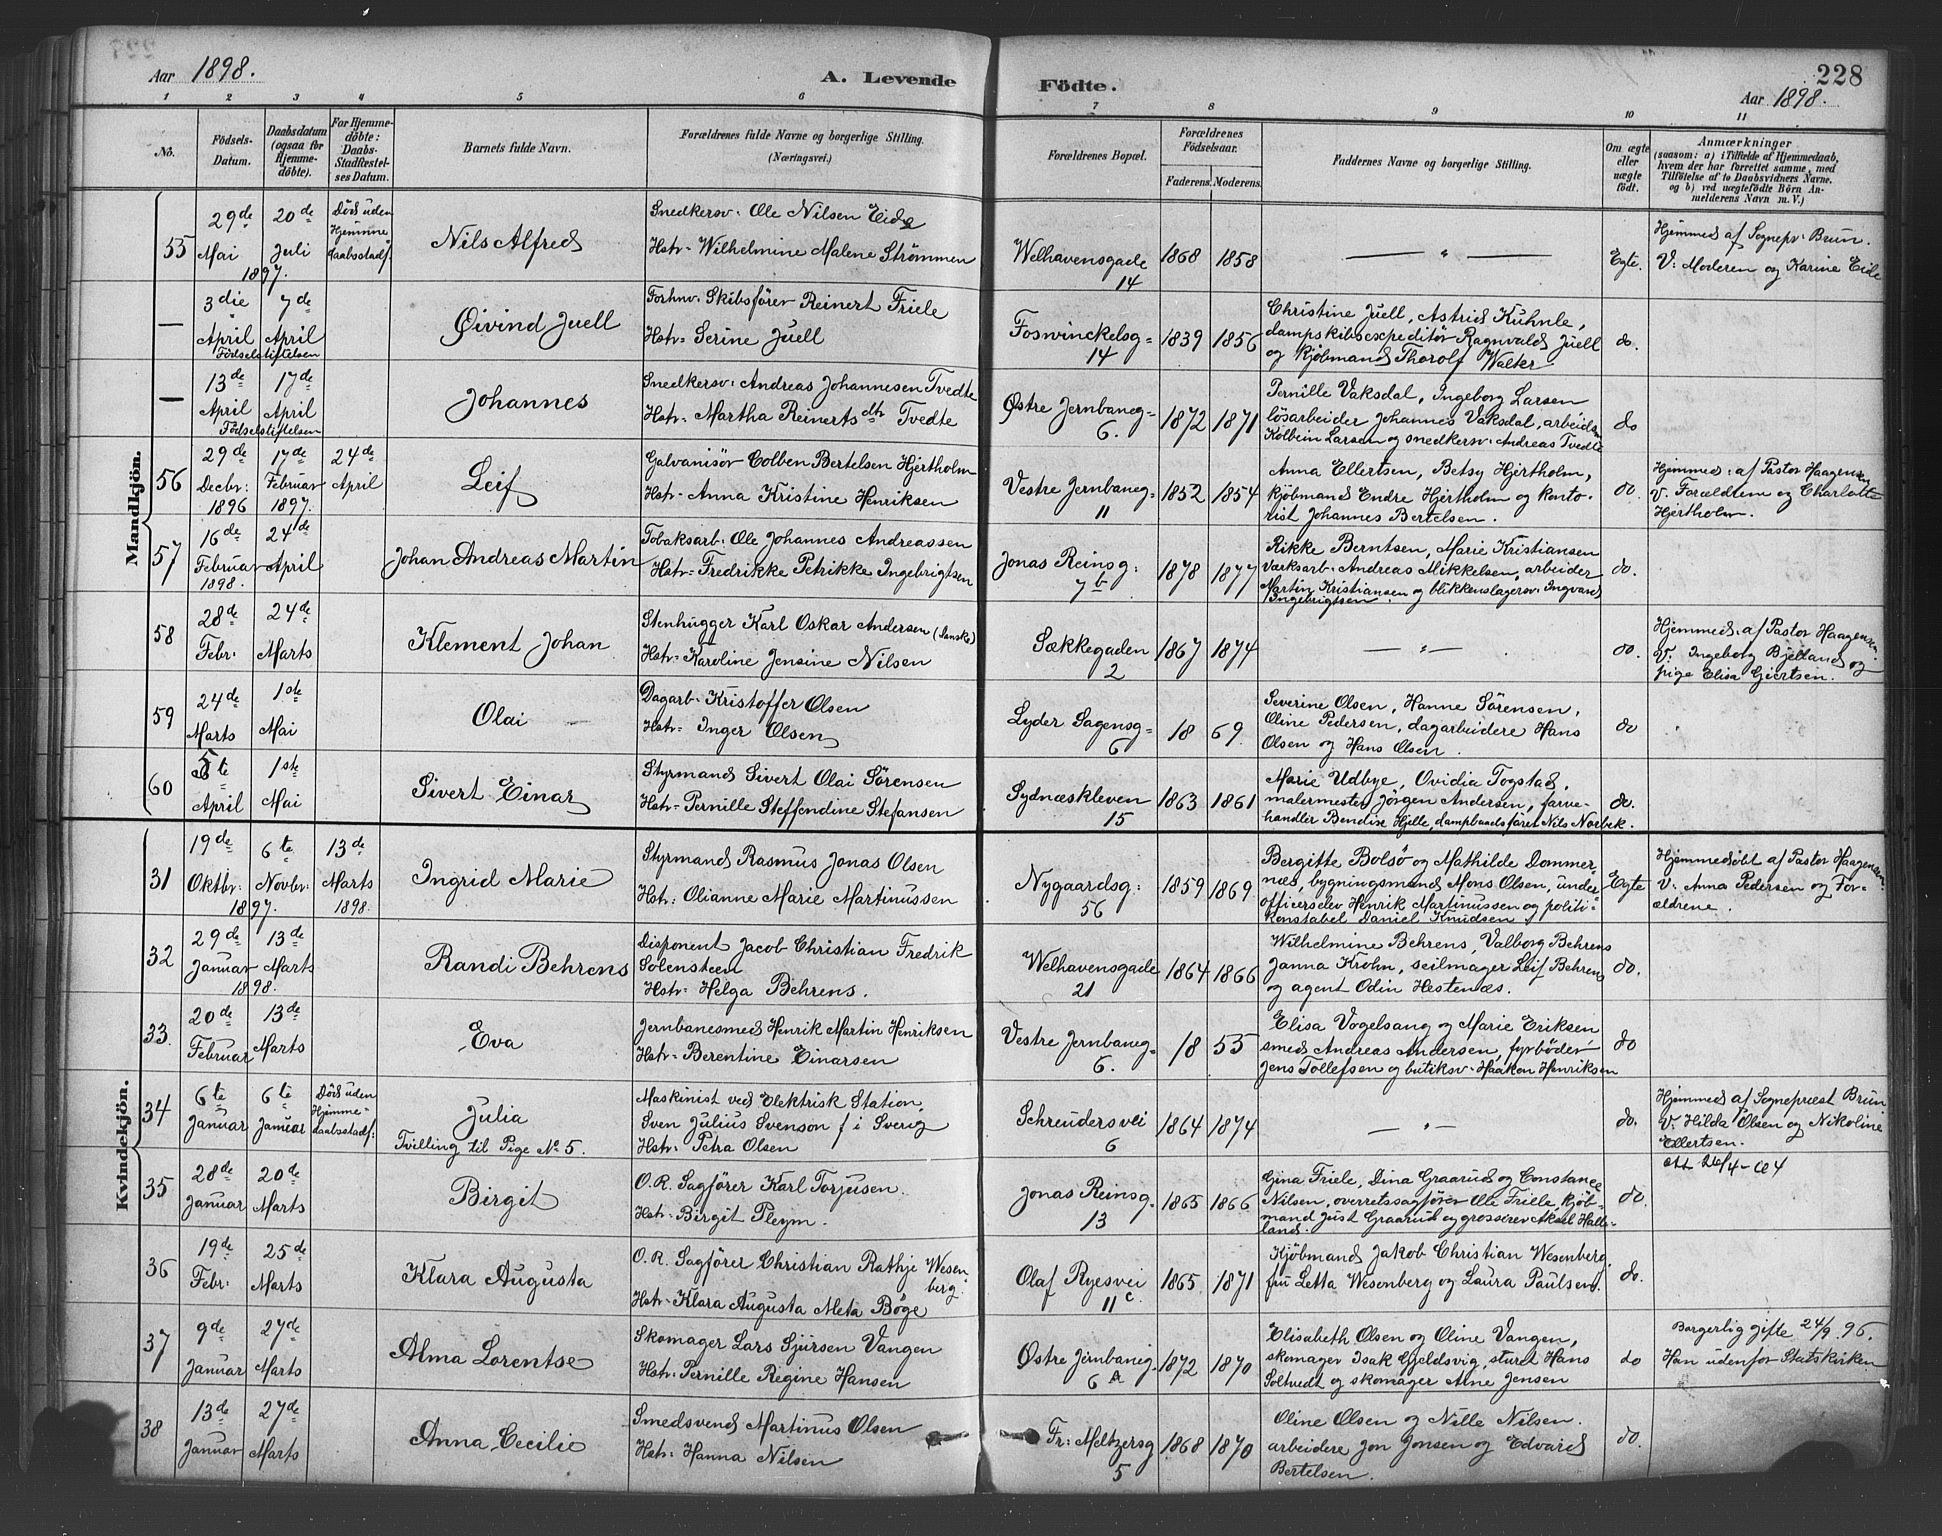 Aar 1898.
A. Levende Födte.
228
Aar 1898.
1 2 3 4 5 6 7 8 9 10 11
No.
Födsels-Datum.
Daabsdatum (ogsaa for Hjemme-döbte).
For Hjemme-döbte: Daabs-Stadfæstel-ses Datum.
Barnets fulde Navn.
Forældrenes fulde Navne og borgerlige Stilling.
(Næringsvei.)
Forældrenes Bopæl.
Forældrenes Födselsaar.
Faderens. Moderens.
Faddernes Navne og borgerlige Stilling.
Om ægte eller uægte födt.
Anmærkninger
(saasom: a) i Tilfælde af Hjemmedaab,
hvem der har forrettet samme, med
Tilföielse af to Daabsvidners Navne.
og b) ved uægtefödte Börn An-
melderens Navn m. V.)
Mandkjön.
55
29de Mai 1897.
20de Juli
Död uden Hjemme daabsstadf.
Nils Alfred
Snedkersv: Ole Nilsen Eide
Hstr- Wilhelmine Malene Strømmen
Welhavensgade 14
1868 1858
— " —
Egte.
Hjemmed af Sognepr: Brun.
V: Moderen og Karine Eide
—
3die April
7de April
Födselsstiftelsen
Øivind Juell
Forhnv: Skibsfører Reinert Friele
Hstr- Serine Juell
Foswinckelsg- 14
1839 1856
Christine Juell, Astrid Kuhnle,
dampskibsexpeditör Ragnvald Juell
og Kjöbmand Thorolf Walter
do.
—
13de April
17de April
Födselsstiftelsen
Johannes
Snedkersv: Andreas Johannesen Tvedte
Hstr- Martha Reinertsdtr Tvedte
Østre Jernbaneg- 6.
1872 1871
Pernille Vaksdal, Ingeborg Larsen
lösarbeider Johannes Vaksdal, arbeider
Kolbein Larsen og snedkersv: Andreas Tvedte
do
56
29de Decbr: 1896
17de Februar 1897.
24de April
Leif
Galvanisör Colben Bertelsen Hjertholm
Hstr- Anna Kristine Henriksen
Vestre Jernbaneg- 11
1852 1854
Anna Ellertsen, Betsy Hjertholm,
Kjöbmand Endre Hjertholm og konto-
rist Johannes Bertelsen.
do.
Hjemmed: af Pastor Haagensen
V. Forældrene og Charlotte
Hjertholm.
57
16de Februar 1898.
24de April
Johan Andreas Martin
Tobaksarb: Ole Johannes Andreassen
Hstr- Fredrikke Petrikke Ingebrigtsen
Jonas Reinsg: 7b
1878 1877
Rikke Berntsen, Marie Kristiansen
Værksarb: Andreas Mikkelsen, arbeider
Martin Kristiansen og blikkenslagersv: Ingvard
Ingebrigtsen.
do.
58
28de Febr:
24de Marts
Klement Johan
Stenhugger Karl Oskar Andersen (svenske)
Hstr- Karoline Jensine Nilsen
Sækkegaden 2
1867 1874
— " —
do.
Hjemmed: af Pastor Haagensen.
V: Ingeborg Bjelland og
pige Elisa Gjertsen.
59
24de Marts
1ste Mai
Olai
Dagarb: Kristoffer Olsen
Hstr- Inger Olsen
Lyder Sagensg- 6
18 69.
Severine Olsen, Hanne Sörensen,
Oline Pedersen, dagarbeidere Hans
Olsen og Hans Olsen.
do
60
5te April
1ste Mai
Sivert Einar
Styrmand Sivert Olai Sörensen
Hstr- Pernille Steffendine Stefansen
Sydnæskleven 15
1863 1861
Marie Udbye, Ovidia Togstad,
malermester Jörgen Andersen, farve-
handler Bendix Hjelle, dampbaadsföret Nils Norbek.
do.
Kvindekjön.
31
19de Oktbr: 1897.
6te Novbr:
13de Marts 1898.
Ingrid Marie
Styrmand Rasmus Jonas Olsen
Hstr: Olianne Marie Martinussen
Nygaardsg: 56
1859 1869
Bergitte Bolsö og Mathilde Dommer-
næs, bygningsmand Mons Olsen, under
officerselev Henrik Martinussen og politi-
konstabel Daniel Knudsen
Egte
Hjemmedöbt af Pastor Haagensen.
V: Anna Pedersen og For-
ældrene.
32
29de Januar 1898.
13de Marts
Randi Behrens
Disponent Jacob Christian Fredrik
Solensteen
Hstr- Helga Behrens.
Welhavensgade 21
1864 1866
Wilhelmine Behrens, Valborg Behrens
Janna Krohn, seilmager Leif Behrens
og agent Odin Hestenæs.
do.
33.
20de Februar
13de Marts
Eva
Jernbanesmed Henrik Martin Henriksen
Hstr- Berentine Einarsen
Vestre Jernbaneg- 6.
18 55
Elisa Vogelsang og Marie Eriksen
smed Andreas Andersen, fyrböder
Jens Tollefsen og butiksv- Haakon Henriksen
do
34
6te Januar
6te Januar
Död uden Hjemme-daabsstadf:
Julia
Tvilling til Pige No 5.
Maskinist ved Elektrisk Station,
Sven Julius Svenson f i Sverig
Hstr: Petra Olsen
Schreudersvei 6
1864 1874
— " —
do.
Hjemmed af Sogneprest Brun
V. Hilda Olsen og Nikoline
Ellertsen.
35
28de Januar
20de Marts
Birgit
O.R. Sagförer Karl Torjusen.
Hstr- Birgit Pleym.
Jonas Reinsg. 13
1865 1866
Gina Friele, Dina Graarud og Constance
Nilsen, overretssagförer Ole Friele, kjöb-
mand Just Graarud og grosserer Aksel Halle-
land.
do.
Att 26/4-04
36
19de Febr:
25de Marts
Klara Augusta
O.R. Sagförer Christian Rathje Wesen
berg.
Hstr- Klara Augusta Meta Böge
Olaf Ryesvei 11c.
1865 1871
Kjöbmand Jakob Christian Wesenberg,
fru Letta Wesenberg og Laura Paulsen.
do.
37
9de Januar
27de Marts
Alma Lorentse
Skomager Lars Sjursen Vangen
Hstr: Pernille Regine Hansen
Østre Jernbaneg. 6A
1872 1870
Elisabeth Olsen og Oline Vangen,
skomager Isak Gjeldsvig, sturet Hans
Soltvedt og skomager Arne Jensen
do
Borgerlig gifte 24/9 96.
Han udenfor Statskirken
38
13de Januar
27de Marts
Anna Cecilie
Smedsvend Martinus Olsen
Hstr: Hanna Nilsen
Fr: Meltzersg 5
1868 1870
Oline Olsen og Nille Nilsen.
arbeidere Jon Jonsen og Edvard
Bertelsen.
do.